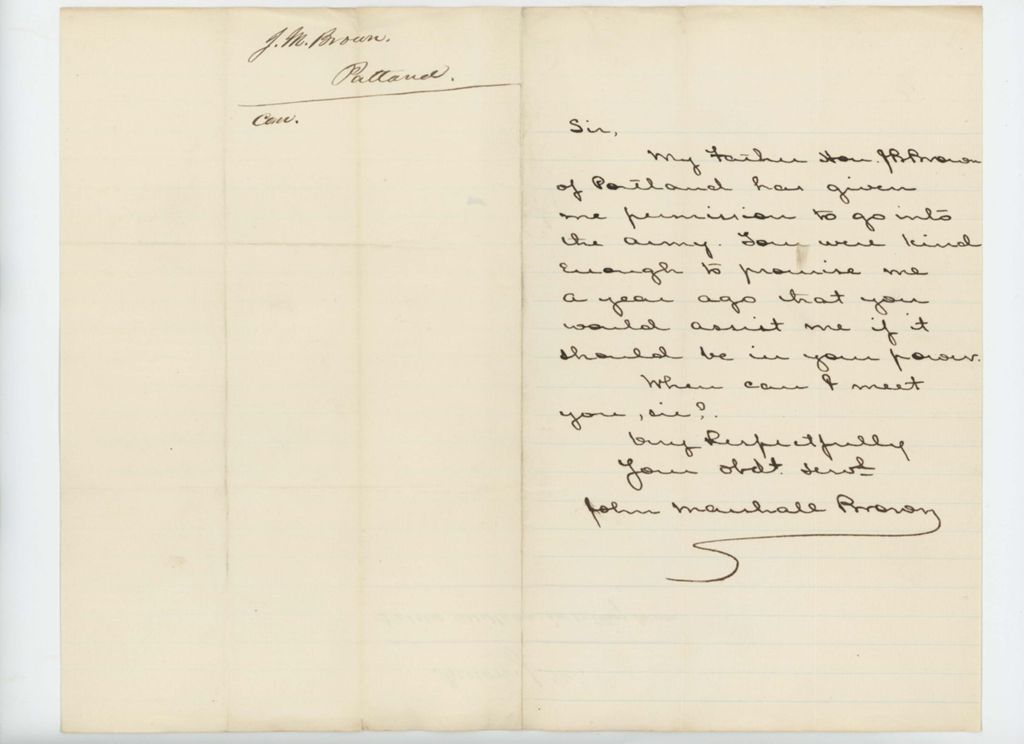 J. M. Brown.
Portland.
Com.
Sir,
My Father Hon. J B Brown
of Portland has given
me permission to go into
the army. You were kind
enough to promise me
a year ago that you
would assist me if it
should be in your power.
When can I meet
you, sir?
Very Respectfully
Your obdt. servt
John Marshall Brown